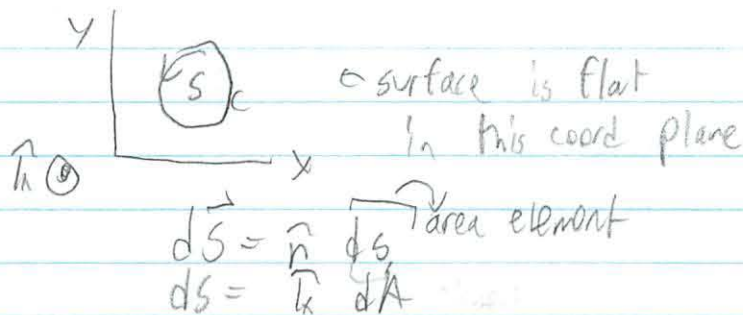 y
S
C
← surface is flat
in this coord plane
x
dS⃗ = n̂ ds area element
ds = k̂ dA